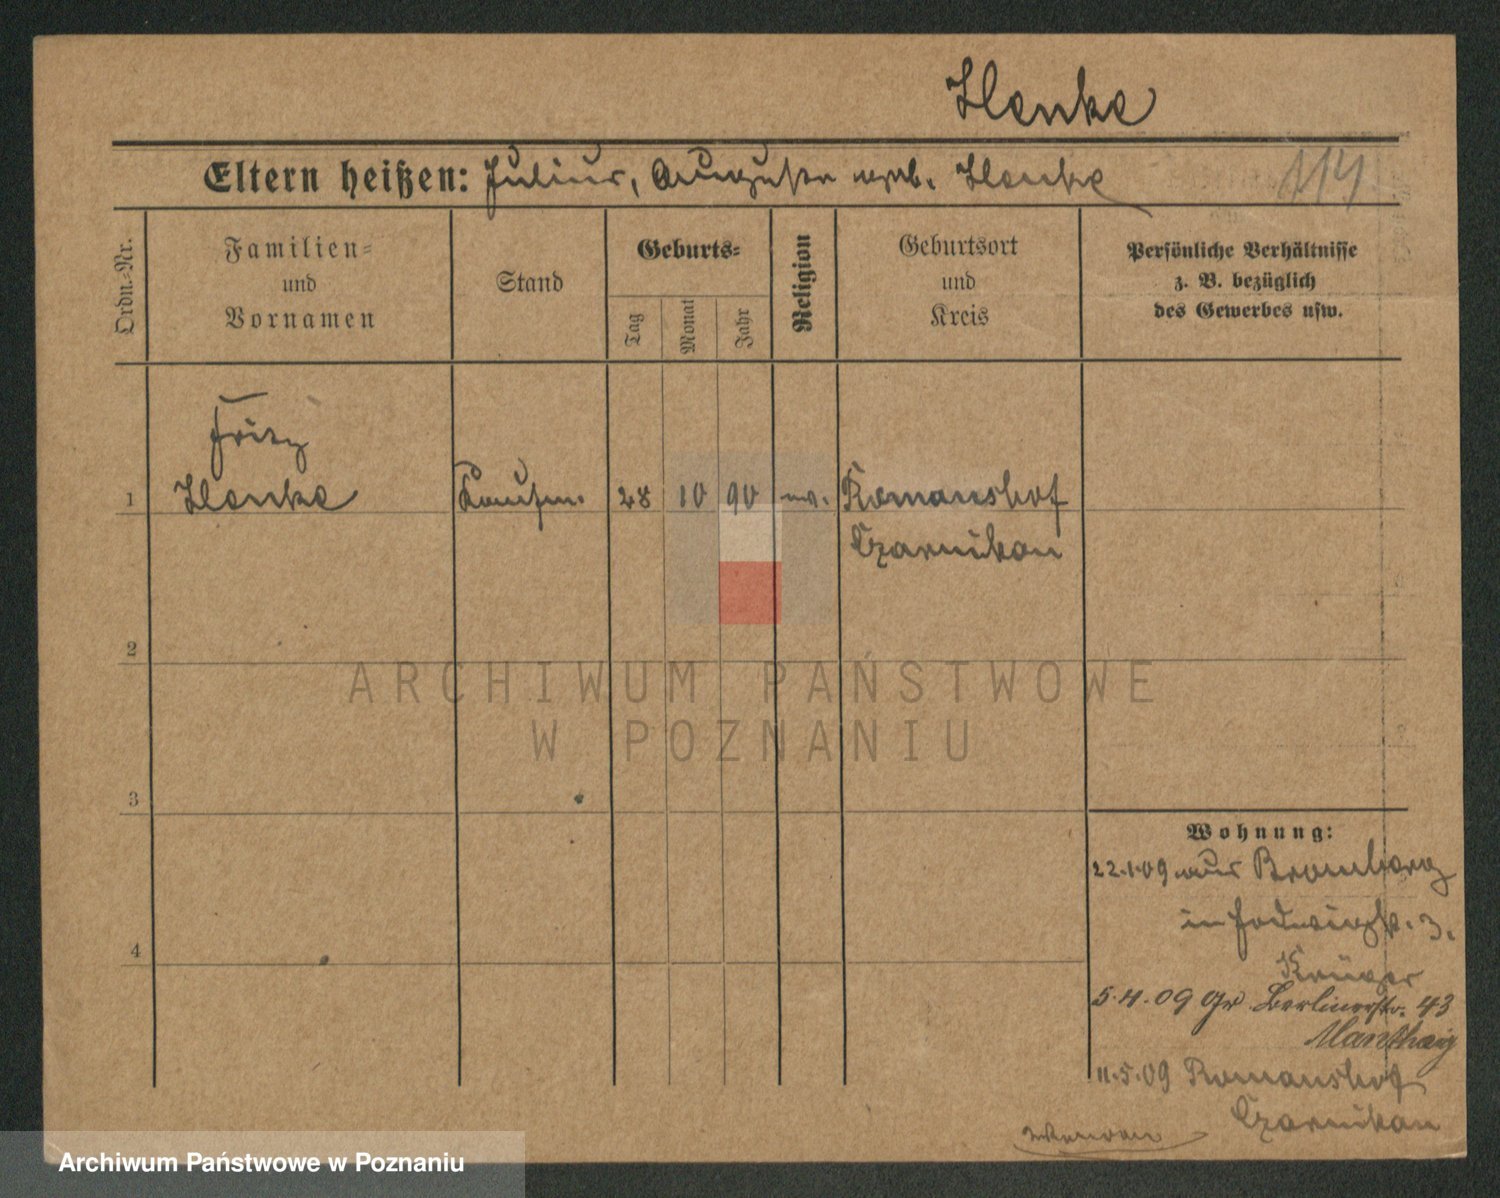 Henke
Eltern heißen: Julius, Auguste geb. Henke
114
Ordn.-Nr.
Familien-
und
Vornamen
Stand
Geburts-
Tag
Monat
Jahr
Religion
Geburtsort
und
Kreis
Persönliche Verhältnisse
z. B. bezüglich
des Gewerbes usw.
Fritz
1 Henke Kaufm. 28 10 90 ev. Romanshof
Czarnikau
2
ARCHIWUM PAŃSTWOWE
W POZNANIU
3
Wohnung:
22.1.09 aus Bromberg
in 3.
4
Krüger
5.4.09 Gr. Berlinerstr. 43
11.5.09 Romanshof
Czarnikau
Archiwum Państwowe w Poznaniu